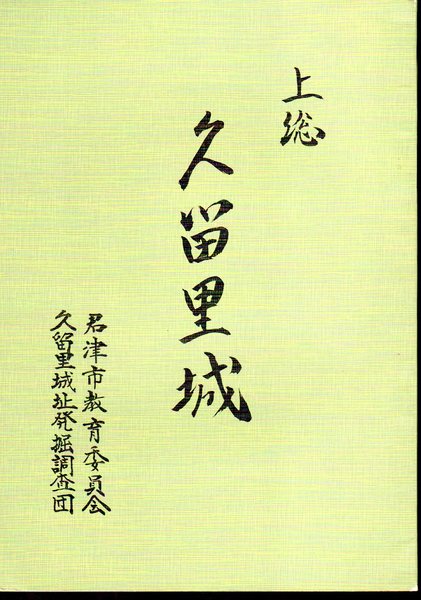 上総
久留里城
君津市教育委員会
久留里城址発掘調査団